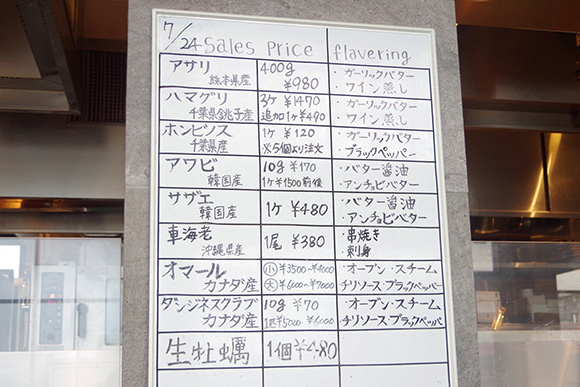 7/24 Sales Price flavering
アサリ 400g ・ガーリックバター
熊本県産 ¥980 ・ワイン蒸し
ハマグリ 3ケ ¥1470 ・ガーリックバター
千葉県銚子産 追加1ケ¥490 ・ワイン蒸し
ホンビノス 1ケ ¥120 ・ガーリックバター
千葉県産 ※5個より注文 ・ブラックペッパー
アワビ 10g ¥170 ・バター醤油
韓国産 1ケ¥1500前後 ・アンチョビバター
サザエ 1ケ ¥480 ・バター醤油
韓国産 ・アンチョビバター
車海老 1尾 ¥380 ・串焼き
沖縄県産 ・刺身
オマール 小 ¥3500-¥4000 ・オーブン・スチーム
カナダ産 大 ¥6000-¥7000 チリソース・ブラックペッパー
ダンジネスクラブ 10g ¥70 ・オーブン・スチーム
カナダ産 1匹¥5000-¥6000 チリソース・ブラックペッパ
生牡蠣 1個¥480